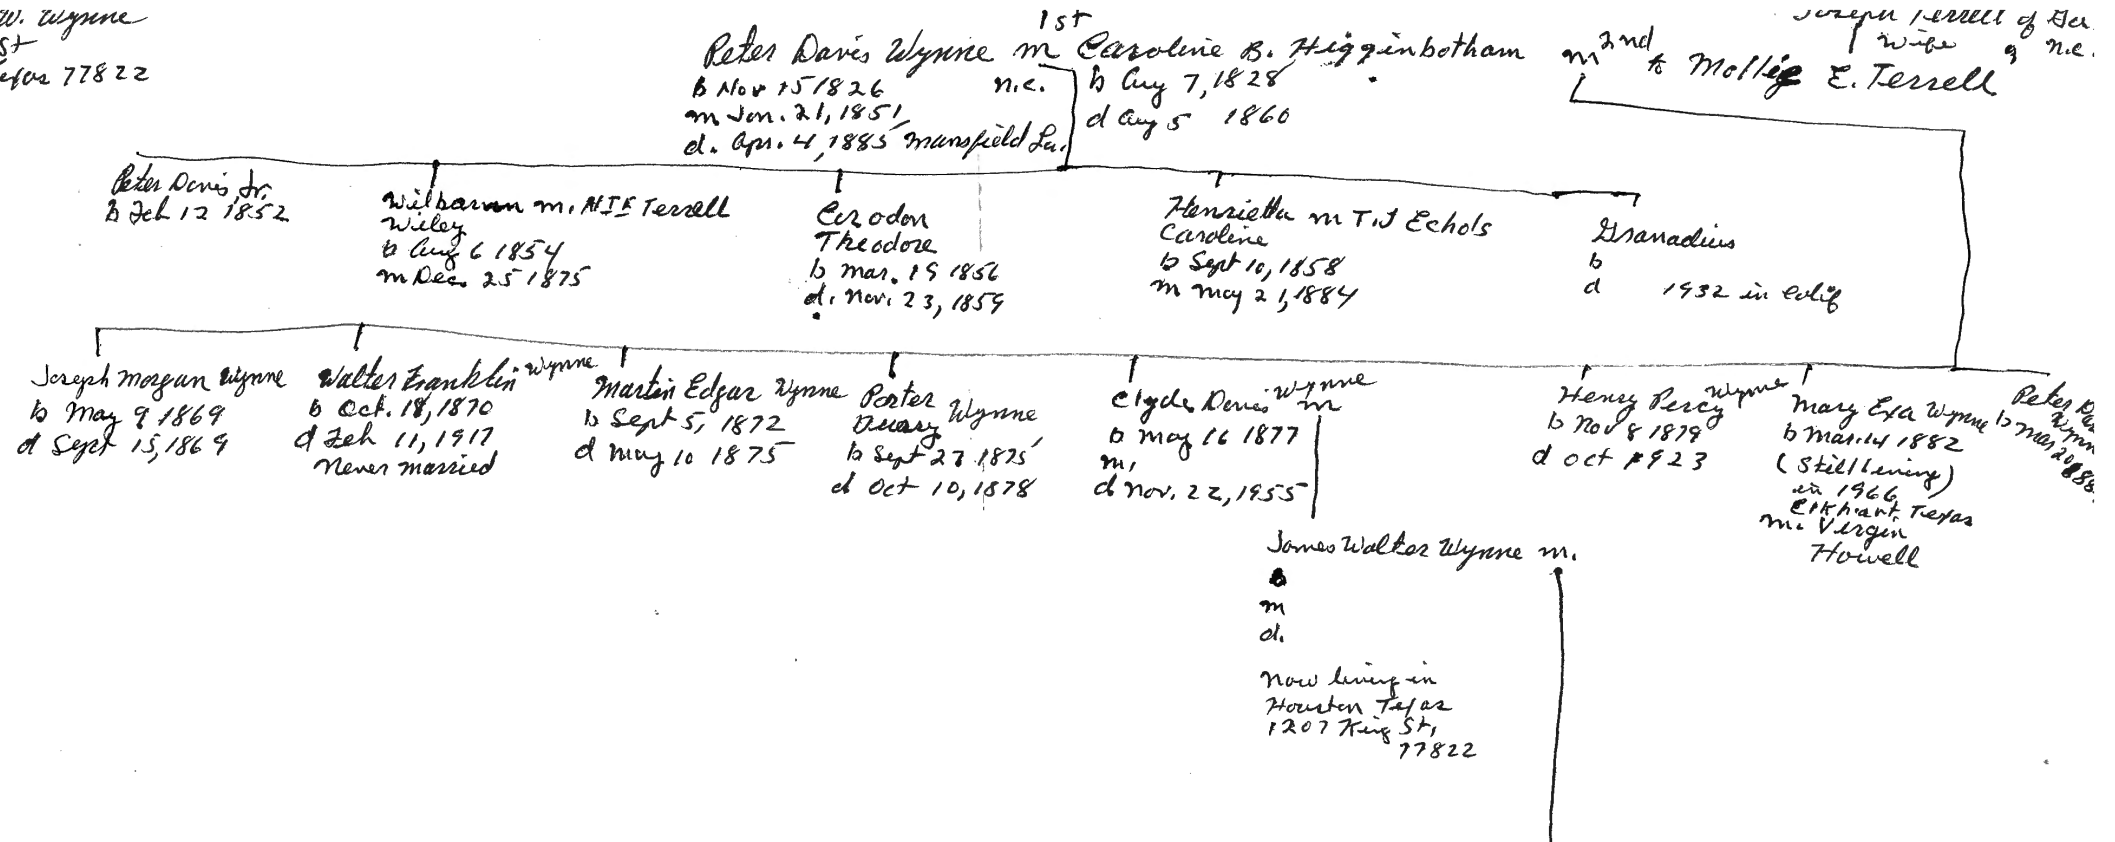 W. Wynne
St
Texas 77822
1st
Peter Davis Wynne m Caroline B. Higginbotham m 2nd to Mollie E. Terrell
Joseph Terrell of Ga.
Wife of N.C.
b Nov 15 1826 n.c.
m Jan. 21, 1851
d. Apr. 4, 1885 Mansfield La.
b Aug 7, 1828
d Aug 5 1860
Peter Davis, Jr.
b Feb 12 1852
m. Terrell
Wiley
b Aug 6 1854
m Dec. 25 1875
Theodore
b Mar. 19 1856
d. Nov. 23, 1859
Henrietta m T.J Echols
Caroline
b Sept 10, 1858
m May 21, 1884
Granadius
b
d 1932 in Calif
Joseph Morgan Wynne
b May 9 1869
d Sept 15, 1869
Walter Franklin Wynne
b Oct. 18, 1870
d Feb 11, 1917
Never married
Martin Edgar Wynne
b Sept 5, 1872
d May 10 1875
Porter
Wynne
b Sept 27 1875
d Oct 10, 1878
Clyde Davis Wynne
m
b May 16 1877
m,
d Nov. 22, 1955
Henry Percy Wynne
b Nov 8 1879
d Oct 1923
Mary Exa Wynne
b Mar. 14 1882
(Still living)
in 1966
Elkhart, Texas
m. Virgin
Howell
Peter
Wynn
b Mar 20
James Walter Wynne m.
b
m
d.
Now living in
Houston Texas
1207 King St,
77822